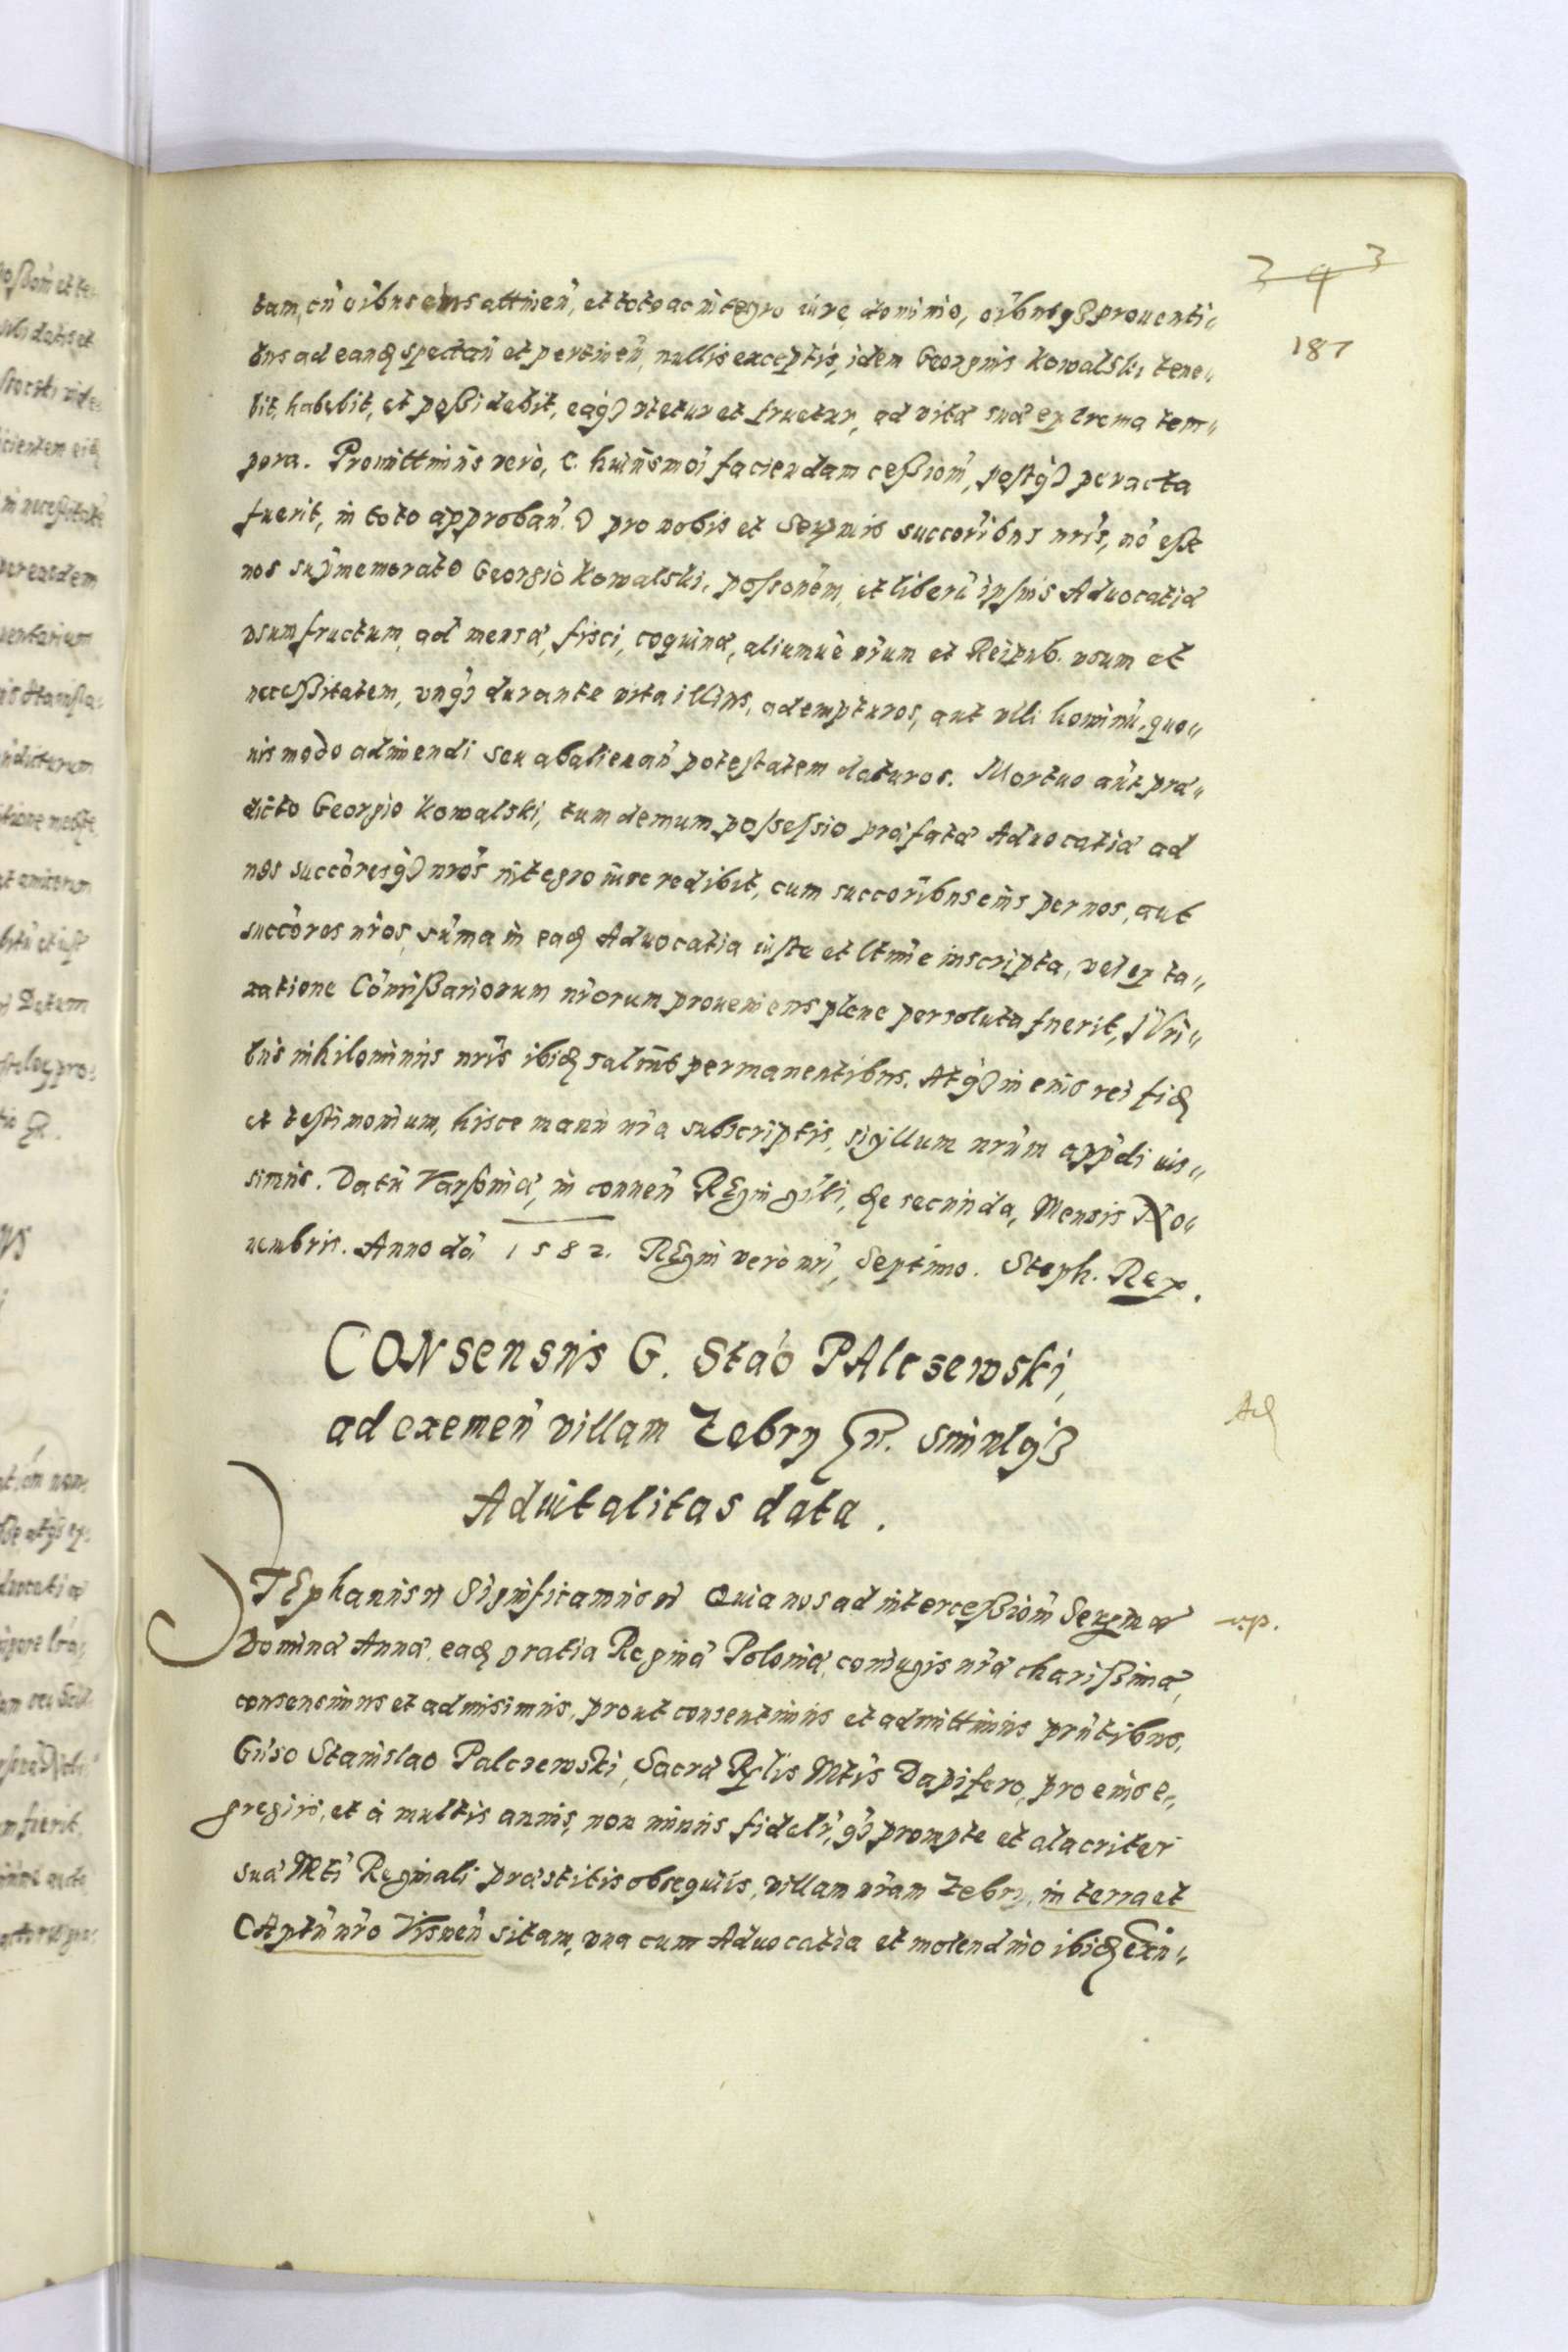 3 4 3
187
tam, cu͂ oi͂bus eius attinen͂, et toto ac integro iure, dominio, oi͂busq₃ prouenti„
bus ad eand₃ spectan͂ et pertinen͂, nullis exceptis, idem Georgius Kowalski tene„
bit, habebit, et poßidebit, eaq₃ vtetur et fruetur, ad vitæ suæ extrema tem„
pora. Promittimus verò, c. huiusmoi͂ faciendam ceßiom͂, postq₃ peracta
fuerit, in toto approban͂. pro nobis et Sermis succori͂bus nr͂is, no͂ est
nos sup͂memorato Georgio Kowalski, possione͂m, et liberu͂ ipsius Aduocatiæ
vsumfructum, ad mensæ, fisci, coquinæ, aliumuè nr͂um et Reipub. vsum et
neceßitatem, vnq₃ durante vita illius, adempturos, aut vlli hominu͂, quo„
uis modo adimendi seu abalienan͂ potestatem daturos. Mortuo aut͂ præ„
dicto Georgio Kowalski, tum demum possessio præfatæ Aduocatiæ ad
nos succo͂resq₃ nr͂os integro iure redibit, cum succori͂bus eius per nos, aut
succo͂res nr͂os, su͂ma in ead₃ Aduocatia iuste et ltim͂e inscripta, vel ex ta„
xatione Com͂ißariorum nr͂orum proueniens plene persoluta fuerit, Iuri„
bus nihilominus nr͂is ibid₃ saluis permanentibus. Atq₃ in eius rei fid₃
et testimonium, hisce manu nr͂a subscriptis, sigillum nr͂um app͂di ius„
simus. Datu͂ Varsouiæ, in conuen͂ Regni gn͂li, die secunda, Mensis No„
uembris. Anno do͂ 1582. Regni verò nr͂i, Septimo. Steph. Rex.
CONsensus G. Sta͂o PAlczewski,
ad exemen͂ villam Zebry simulq₃
Aduitalitas data.
Ad
STEphanus Significamus Quia nos ad interceßiom͂ Sermæ
Dominæ Annæ, ead₃ gratia Reginæ Poloniæ, coniugis nr͂æ charißimæ,
consensimus et admisimus, prout consentimus et admittimus pn͂tibus,
Gn͂so Stanislao Palczewski, Sacræ Rglis Mtis Dapifero, pro eius e„
gregiis, et à multis annis, non minus fideli͂, q₃ prompte et alacriter
suæ Mti Reginali præstitis obsequiis, villam nr͂am Zebry, in terra et
CAptu͂ nr͂o Visnen͂ sitam, vna cum Aduocatia et molendino ibid₃ exn„